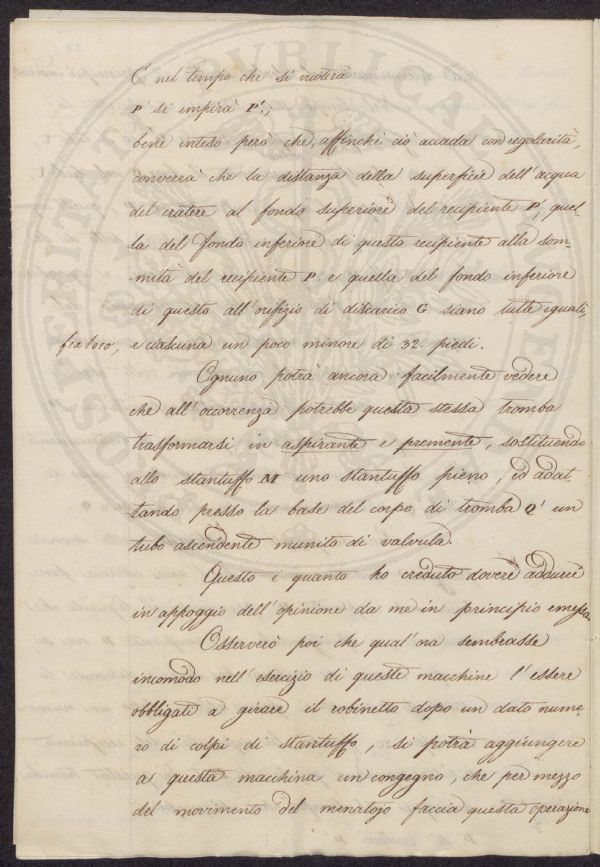 E nel tempo che si vuoterà
P' si empirà P'.;
bene inteso però che, affinchè ciò accada con regolarità,
converrà che la distanza della superficie dell'acqua
del cratere al fondo superiore del recipiente P', quel-
la del fondo inferiore di questo recipiente alla som-
mità del recipiente P. e quella del fondo inferiore
di questo all'orifizio di discarico G. siano tutte eguali,
fra loro, e ciascuna un poco minore di 32. piedi.
Ognuno potrà ancora facilmente vedere
che all'occorrenza potrebbe questa stessa tromba
trasformarsi in aspirante e premente, sostituendo
allo stantuffo M uno stantuffo pieno, ed adat
tando presso la base del corpo di tromba Q' un
tubo ascendente munito di valvula.
Questo è quanto ho creduto dovere addurre
in appoggio dell'opinione da me in principio emessa.
Osserverò poi che qual'ora sembrasse
incomodo nell'esercizio di queste macchine l'essere
obbligati a girare il robinetto dopo un dato nume-
ro di colpi di stantuffo, si potrà aggiungere
a questa macchina un congegno, che per mezzo
del movimento del menatojo faccia questa operazione